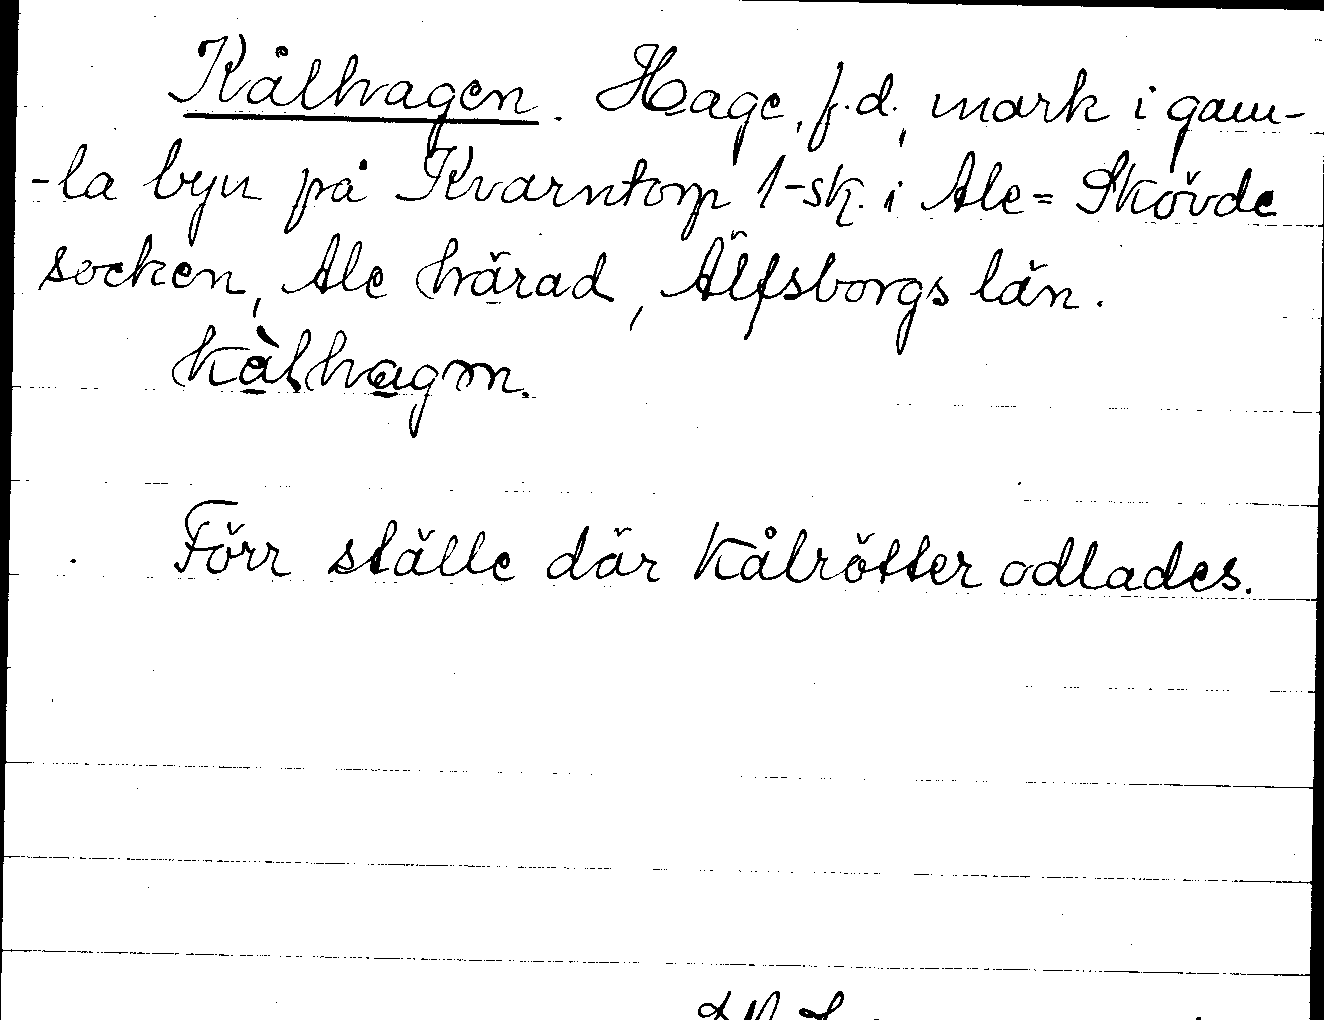 Kålhagen. Hage, f.d., mark i gam-
-la byn på Kvarntorp 1-sk. i Ale=Skövde
socken, Ale härad, Älfsborgs län.
kàlhagm.
Förr ställe där kålrötter odlades.